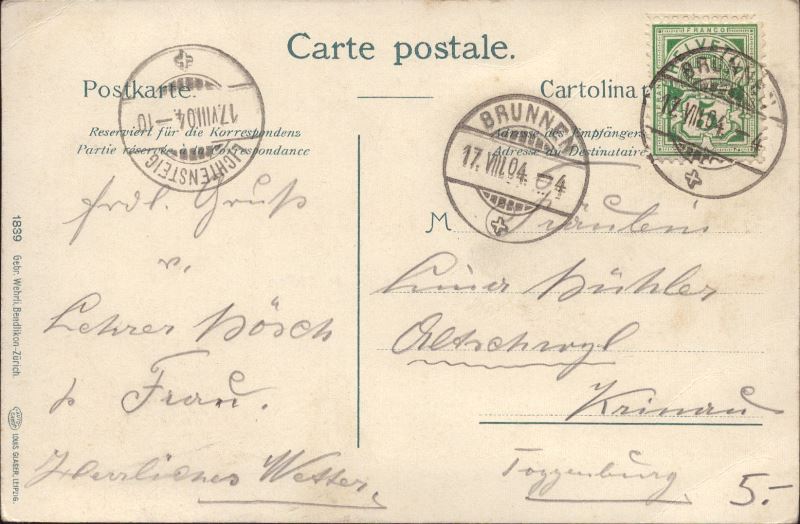 Carte postale.
Postkarte.
Cartolina p
Reserviert für die Korrespondenz
Partie réservée à la correspondance
Adresse des Empfängers
Adresse du Destinataire
LICHTENSTEIG
17.VIII.04.-10
BRUNNEN
17.VIII.04.-4
FRANCO
HELVETIA
5
BRUNNEN
17.VIII.04.-4
frdl. Gruß
v.
Lehrer Bösch
Frau.
Herrliches Wetter.
M Fräulein
Bühler
Altschwyl
Krinau
Toggenburg
5.-
1839 Gebr. Wehrli, Bendlikon-Zürich.
LOUIS GLASER, LEIPZIG